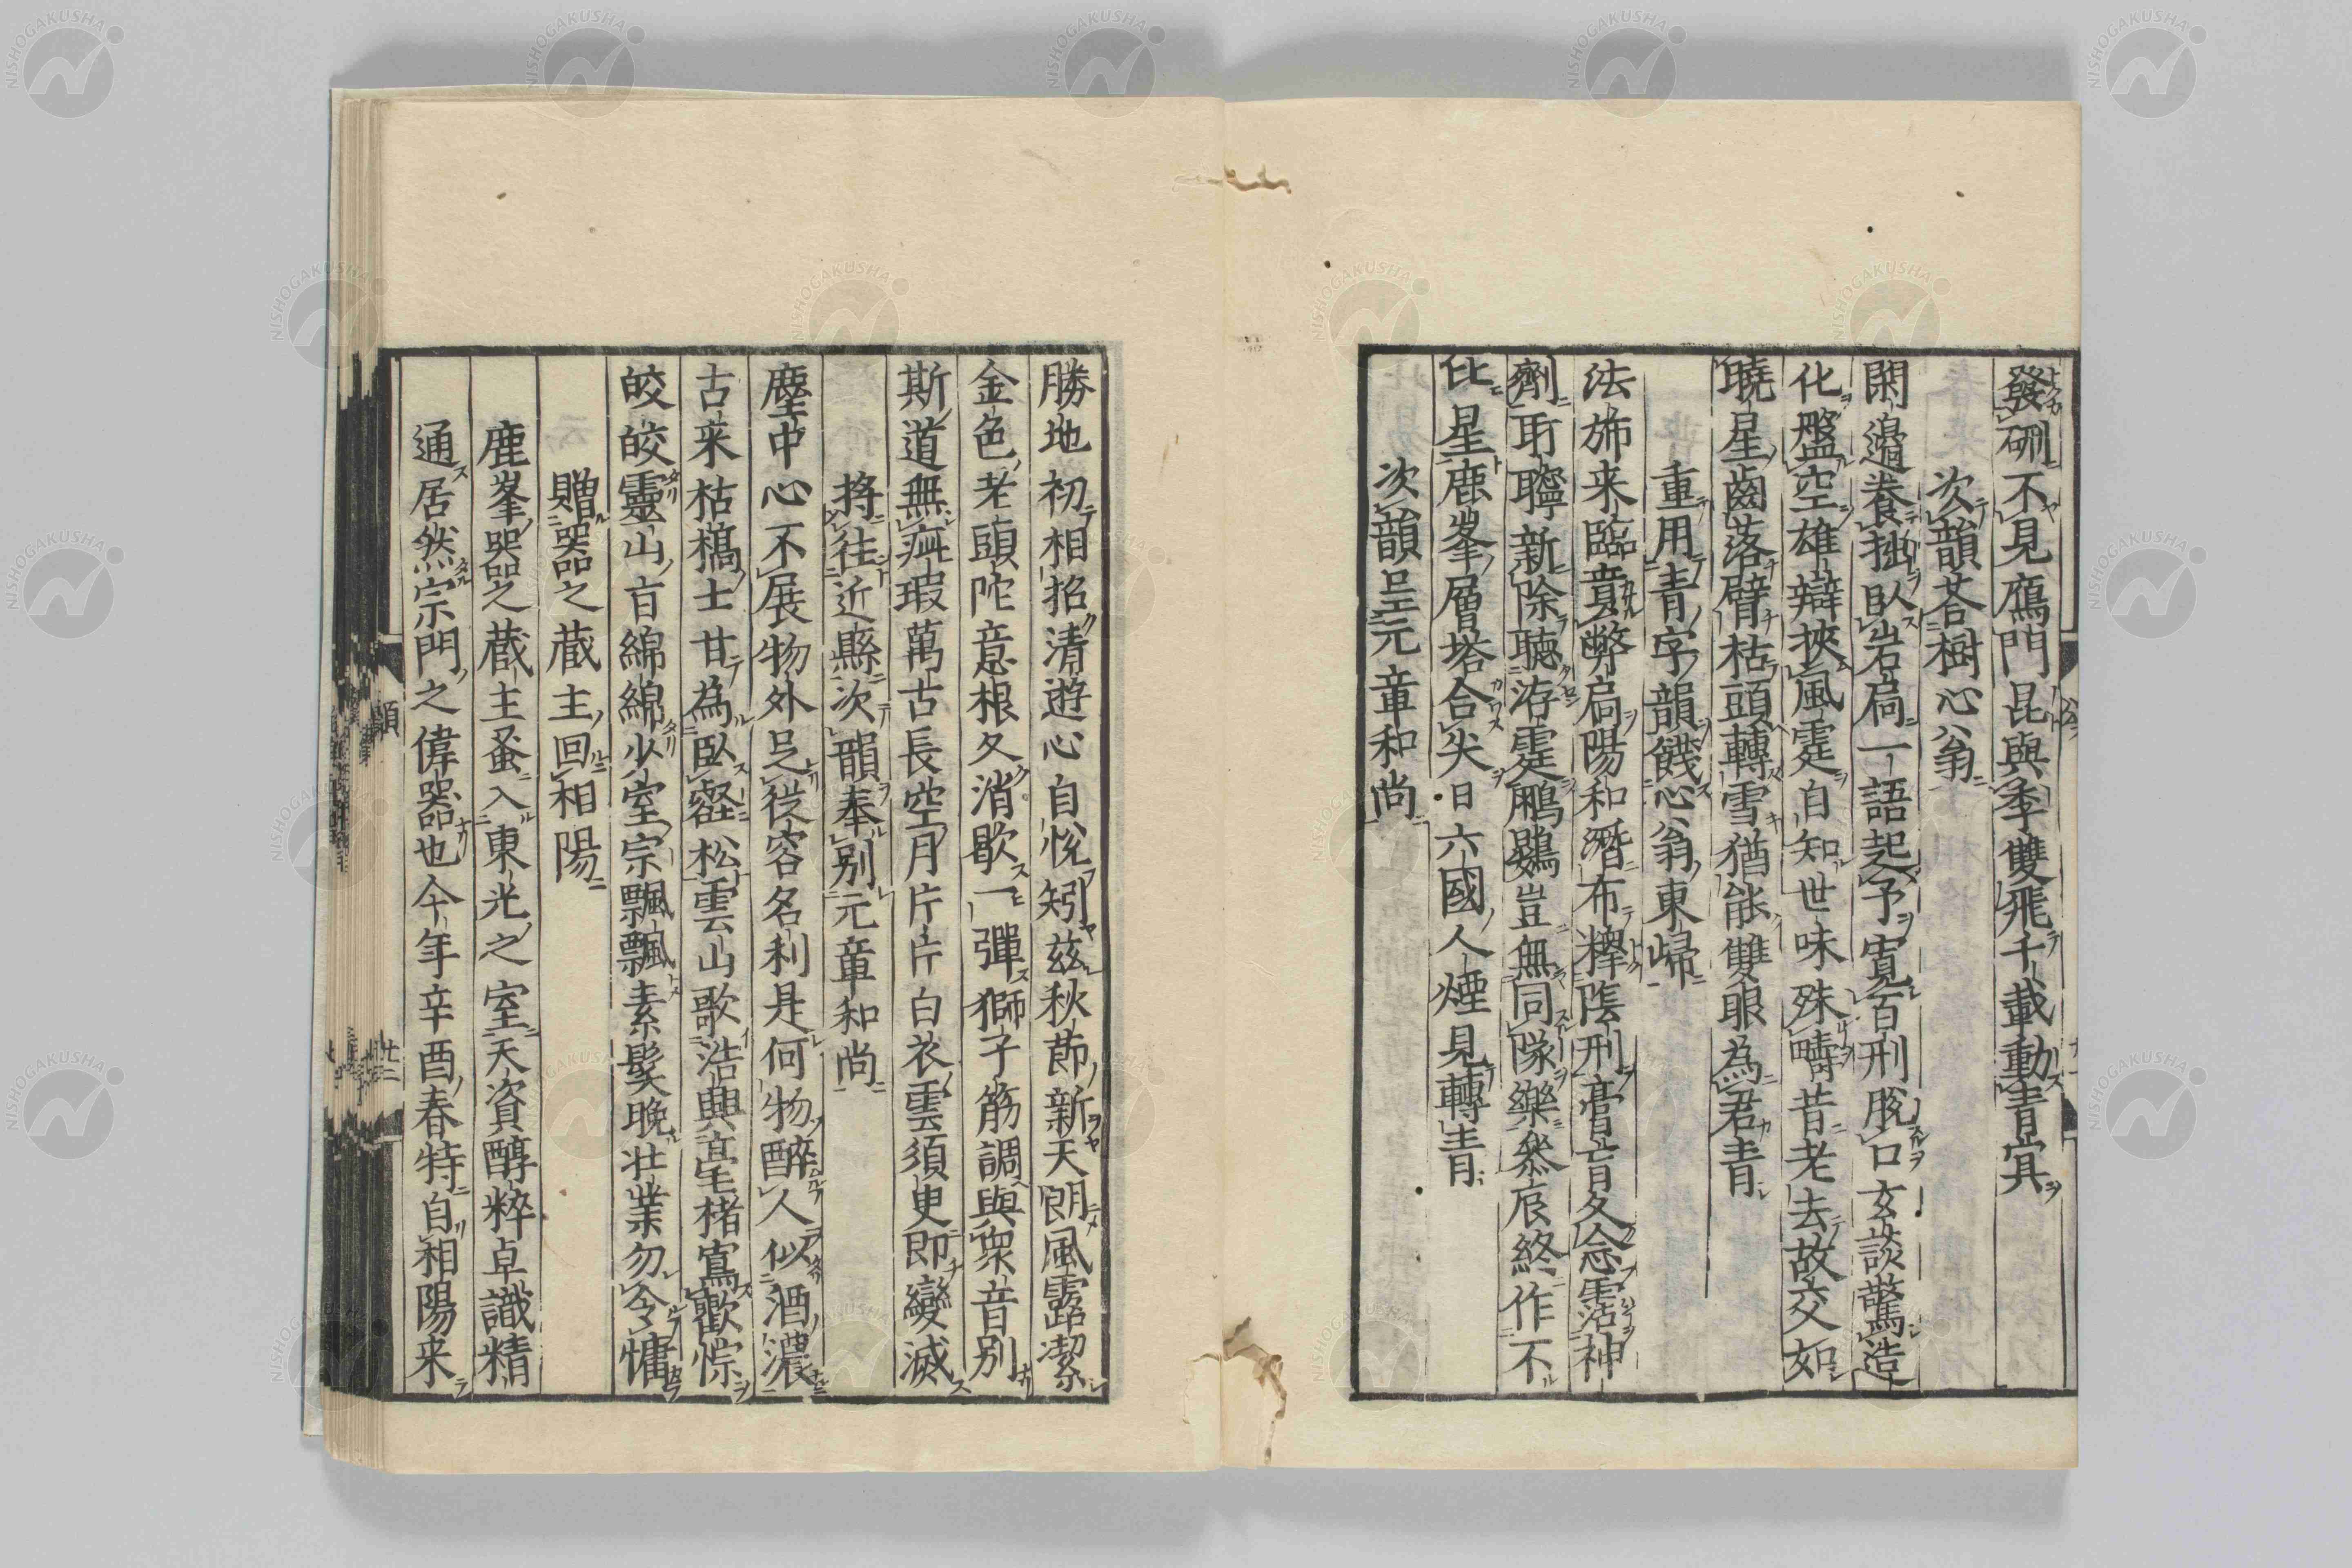 發硎不見鴈門昆與季雙飛千載動青冥
次韻荅樹心翁
閑邉養拙臥岩扃一語起予寛百刑脫口玄談驚造
化盤空雄辯挾風霆自知世味殊疇昔老去故交如
曉星齒落臂枯頭轉雪猶能雙眼為君青
重用青字韻餞心翁東歸
法斾来臨賁弊扃陽和潛布釋陰刑膏肓久念霑神
劑耵聹新除聽洊霆鵬鷃豈無同隊樂叅辰終作不
比星鹿峯層塔合尖日六國人煙見轉青
次韻呈元章和尚
勝地初相招清遊心自悅矧茲秋節新天朗風露潔
金色老頭陀意根久消歇一彈獅子筋調與衆音別
斯道無疵瑕萬古長空月片片白衣雲須臾即變滅
将往近縣次韻奉別元章和尚
塵中心不展物外足從容名利是何物醉人似酒濃
古来枯槁士甘為臥壑松雲山歌浩興毫楮寫歡悰
皎皎靈山旨綿綿少室宗飄飄素髮晚壮業勿令慵
贈器之蔵主回相陽
鹿峯器之蔵主蚤入東光之室天資醇粹卓識精
通居然宗門之偉器也今年辛酉春特自相陽来